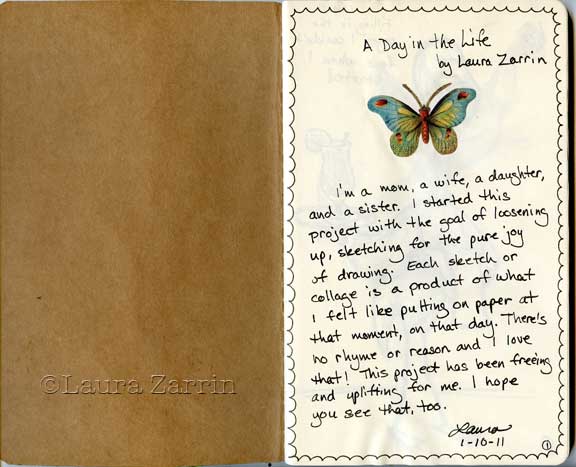 A Day in the Life
by Laura Zarrin
I'm a mom, a wife, a daughter,
and a sister. I started this
project with the goal of loosening
up, sketching for the pure joy
of drawing. Each sketch or
collage is a product of what
I felt like putting on paper at
that moment, on that day. There's
no rhyme or reason and I love
that! This project has been freeing
and uplifting for me. I hope
you see that, too.
Laura
1-10-11
1
©Laura Zarrin